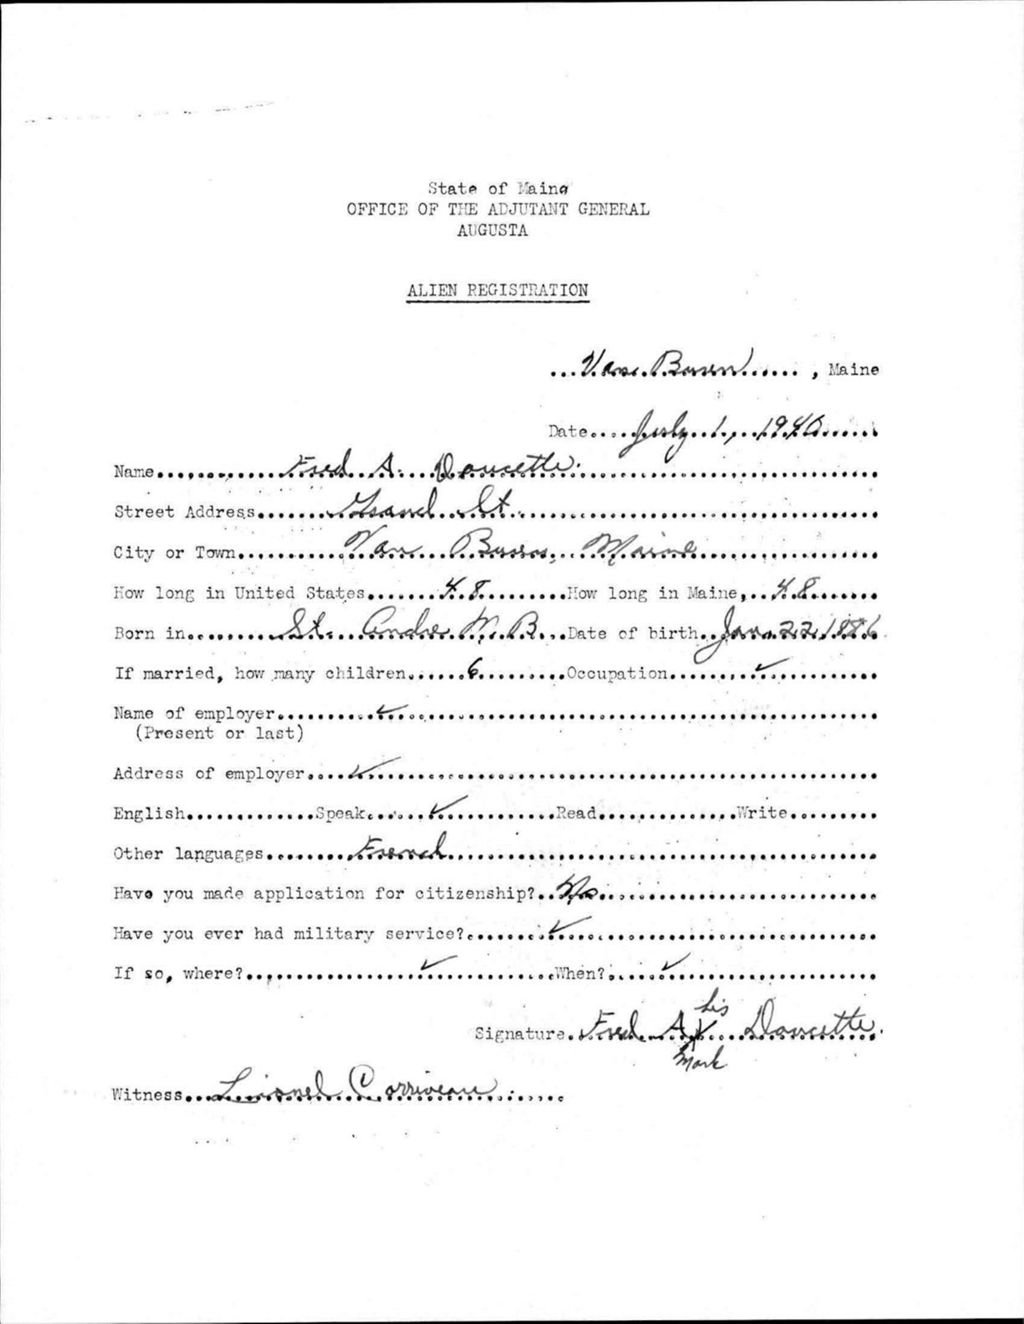 State of Maine
OFFICE OF THE ADJUTANT GENERAL
AUGUSTA
ALIEN REGISTRATION
Van Buren, Maine
Date July 1, 1940
Name Fred A. Doucette
Street Address Grand St.
City or Town Van Buren, Maine
How long in United States 48 How long in Maine, 48
Born in St. Andre N.B. Date of birth Jan. 22, 1886
If married, how many children 6 Occupation ✓
Name of employer ✓
(Present or last)
Address of employer ✓
English Speak ✓ Read Write
Other languages French
Have you made application for citizenship? No
Have you ever had military service? ✓
If so, where? ✓ When? ✓
his
Signature Fred A. X Doucette.
Mark
Witness Lionel Corriveau